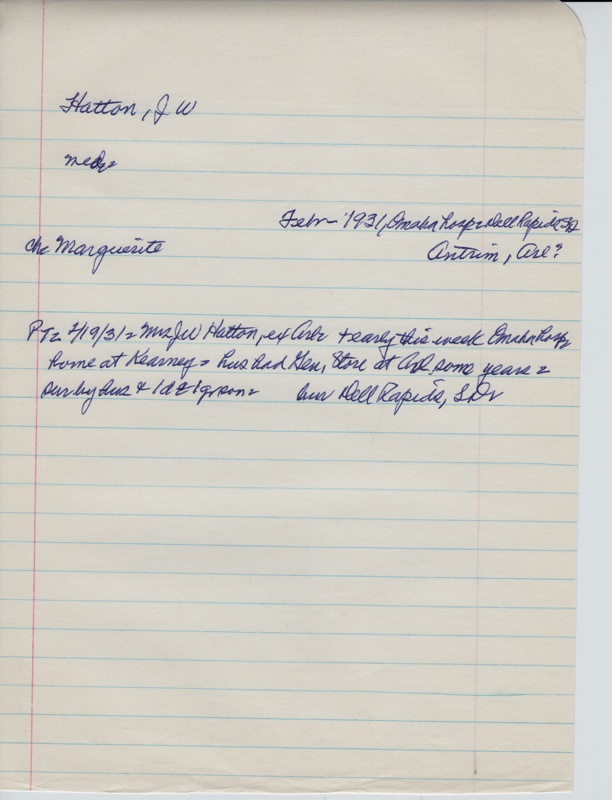 Hatton, J W
Feb - 1931, Omaha Hosp = Dell Rapids SD
ch: Marguerite
Antrim, Arl?
PT = 2/19/31 = Mrs J W Hatton, ex Arl = + early this week Omaha Hosp
home at Kearney = hus had Gen, Store at Arl, some years =
sur by hus & 1 d & 1 grson = bur Dell Rapids, S D